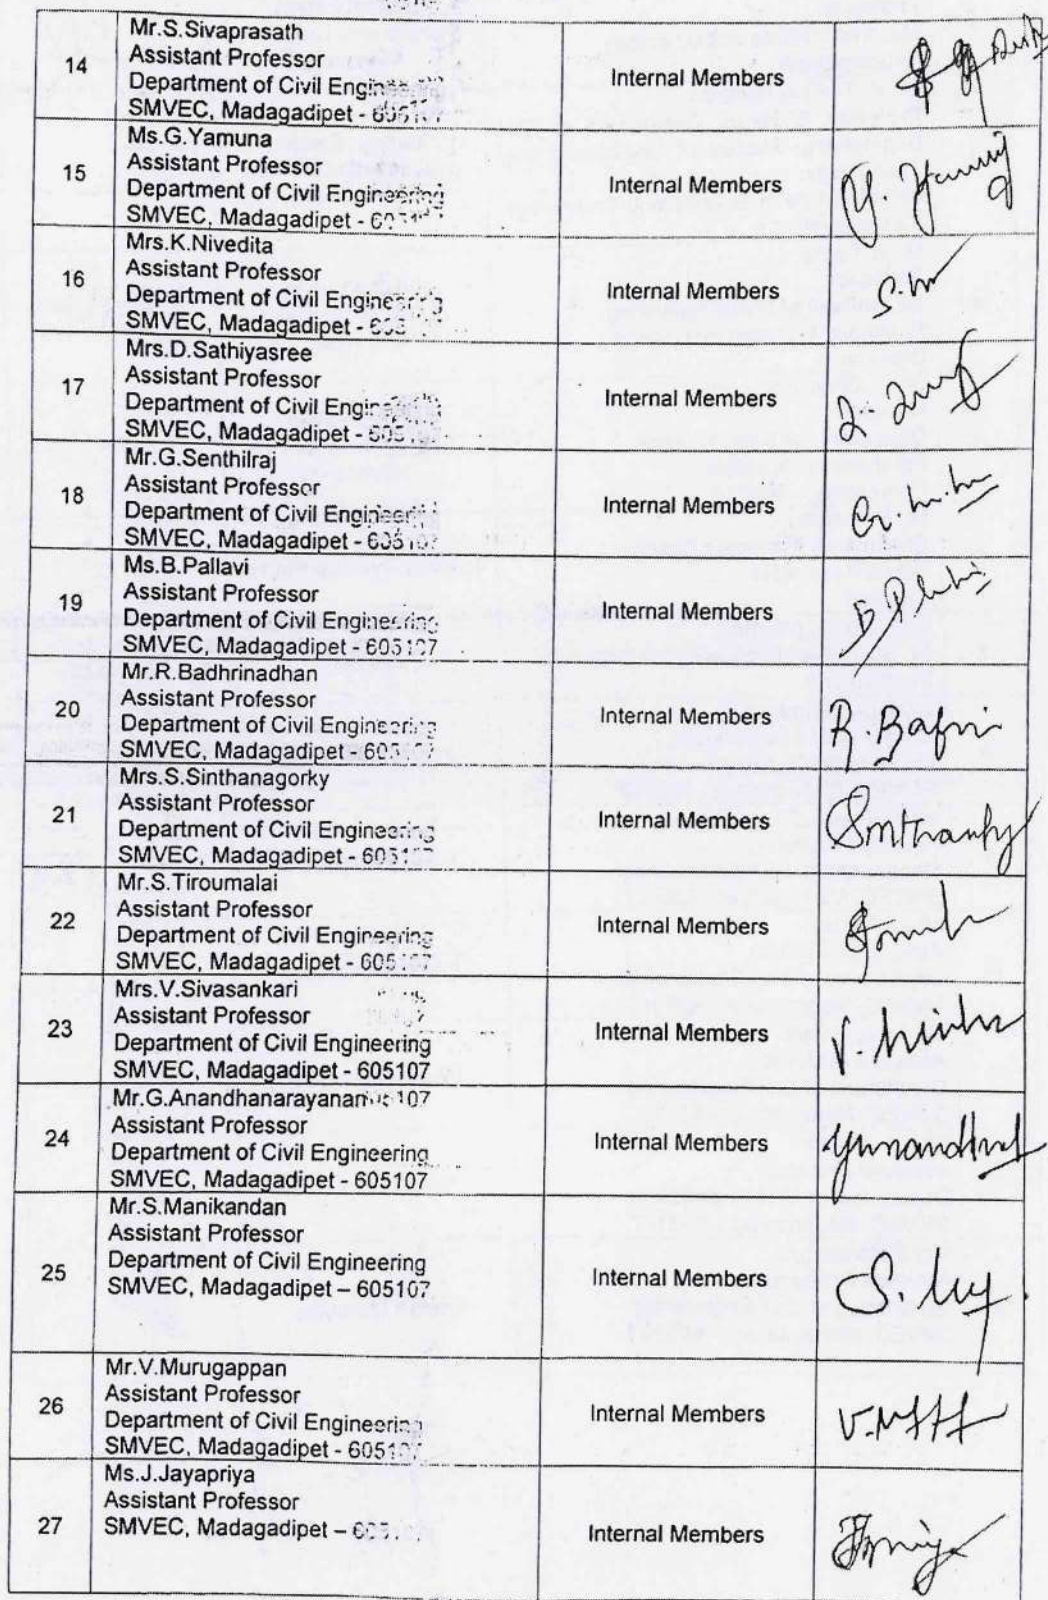 14
Mr.S.Sivaprasath
Assistant Professor
Department of Civil Engineering
SMVEC, Madagadipet -
Internal Members
15
Ms.G.Yamuna
Assistant Professor
Department of Civil Engineering
SMVEC, Madagadipet -
Internal Members
16
Mrs.K.Nivedita
Assistant Professor
Department of Civil Engineering
SMVEC, Madagadipet -
Internal Members
17
Mrs.D.Sathiyasree
Assistant Professor
Department of Civil Engineering
SMVEC, Madagadipet -
Internal Members
18
Mr.G.Senthilraj
Assistant Professor
Department of Civil Engineering
SMVEC, Madagadipet - 605107
Internal Members
19
Ms.B.Pallavi
Assistant Professor
Department of Civil Engineering
SMVEC, Madagadipet - 605107
Internal Members
20
Mr.R.Badhrinadhan
Assistant Professor
Department of Civil Engineering
SMVEC, Madagadipet - 605107
Internal Members
R.
21
Mrs.S.Sinthanagorky
Assistant Professor
Department of Civil Engineering
SMVEC, Madagadipet - 605107
Internal Members
22
Mr.S.Tiroumalai
Assistant Professor
Department of Civil Engineering
SMVEC, Madagadipet - 605107
Internal Members
23
Mrs.V.Sivasankari
Assistant Professor
Department of Civil Engineering
SMVEC, Madagadipet - 605107
Internal Members
V.
24
Mr.G.Anandhanarayanan
Assistant Professor
Department of Civil Engineering
SMVEC, Madagadipet - 605107
Internal Members
25
Mr.S.Manikandan
Assistant Professor
Department of Civil Engineering
SMVEC, Madagadipet – 605107
Internal Members
S.
26
Mr.V.Murugappan
Assistant Professor
Department of Civil Engineering
SMVEC, Madagadipet - 605107
Internal Members
27
Ms.J.Jayapriya
Assistant Professor
SMVEC, Madagadipet –
Internal Members